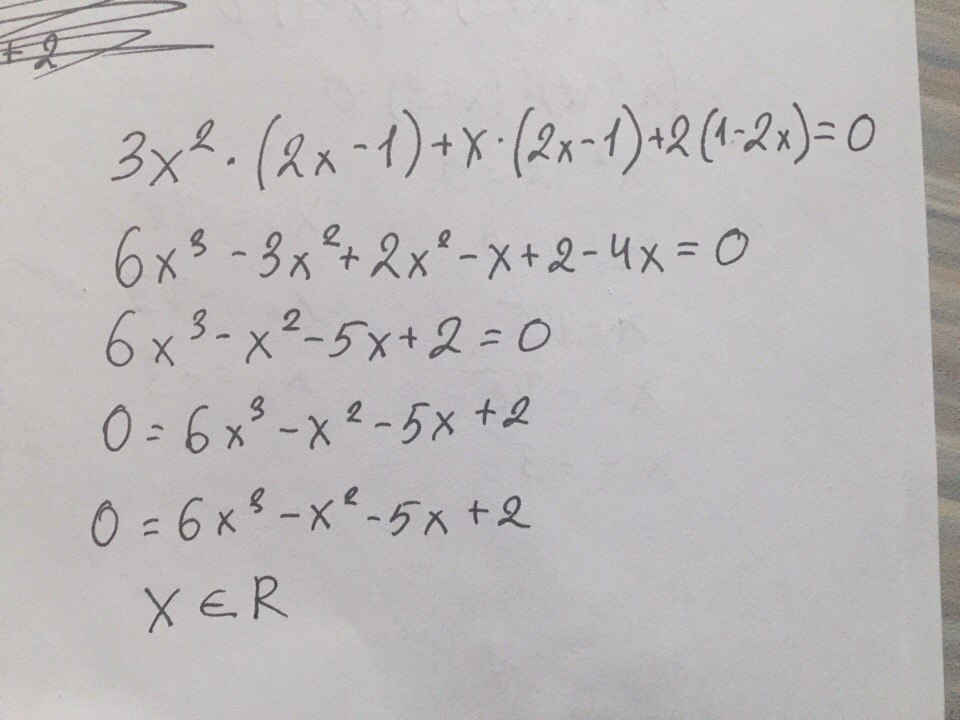 + 2
3x² · (2x - 1) + x · (2x - 1) + 2(1 - 2x) = 0
6x³ - 3x² + 2x² - x + 2 - 4x = 0
6x³ - x² - 5x + 2 = 0
0 = 6x³ - x² - 5x + 2
0 = 6x³ - x² - 5x + 2
x ∈ R